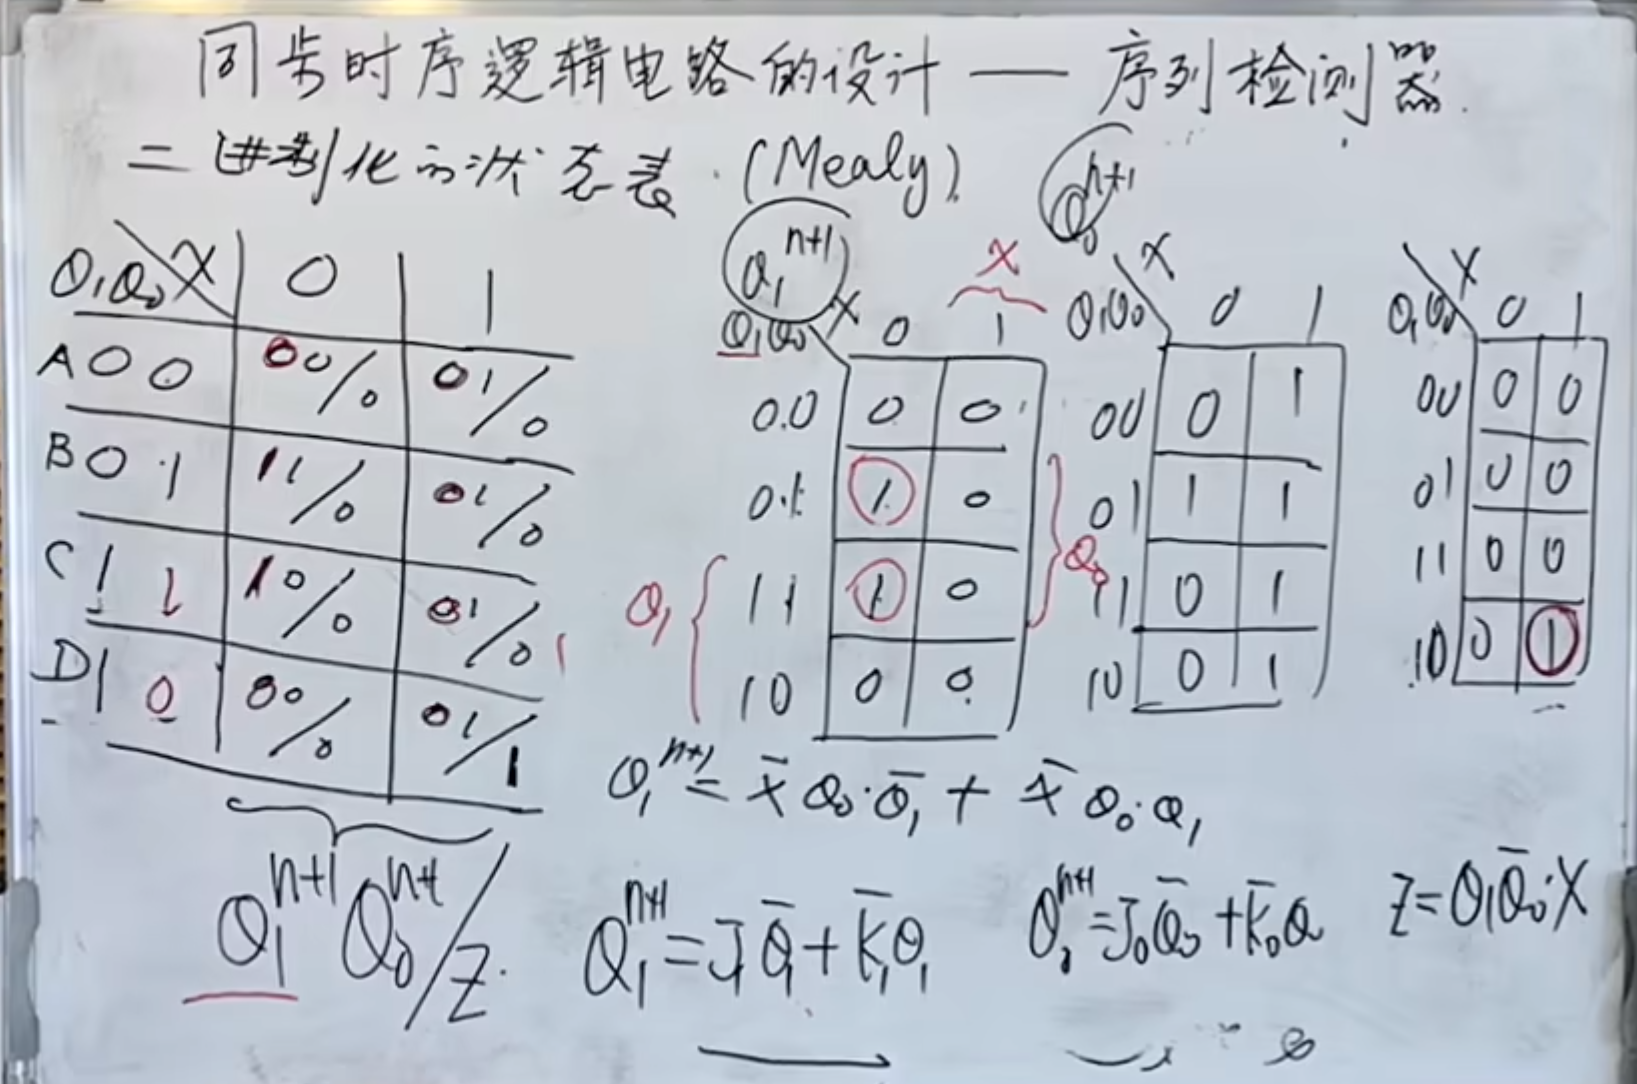 同步时序逻辑电路的设计 — 序列检测器
二进制化的状态表.(Mealy)
Q₁Q₀ X 0 1
A 0 0 00/0 01/0
B 0 1 11/0 01/0
C 1 1 10/0 01/0
D 1 0 00/0 01/1
Q₁ⁿ⁺¹Q₀ⁿ⁺¹/Z.
Q₁ⁿ⁺¹
X
Q₁Q₀ X 0 1
00 0 0
01 1 0
11 1 0
10 0 0
Q₁
Q₀
Q₀ⁿ⁺¹
Q₁Q₀ X 0 1
00 0 1
01 1 1
11 0 1
10 0 1
Q₁Q₀ X 0 1
00 0 0
01 0 0
11 0 0
10 0 1
Q₁ⁿ⁺¹ = X̄Q₀·Q̄₁ + X̄Q₀·Q₁
Q₁ⁿ⁺¹ = J₁Q̄₁ + K̄₁Q₁
Q₀ⁿ⁺¹ = J₀Q̄₀ + K̄₀Q₀
Z = Q₁Q̄₀·X